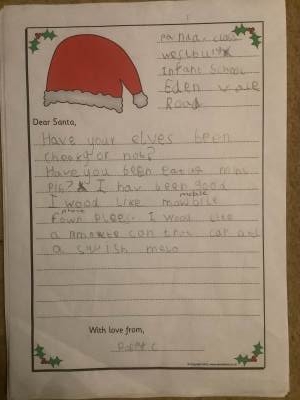 panda class
westbury
Infant School
Eden vale
Road
Dear Santa,
Have your elves been
cheeky or not?
Have you been eating minc
pis? I hav been good
mobile
I wood like mowbile
phone
fown pleese I wood like
a remote can trol car and
a squish melo
With love from,